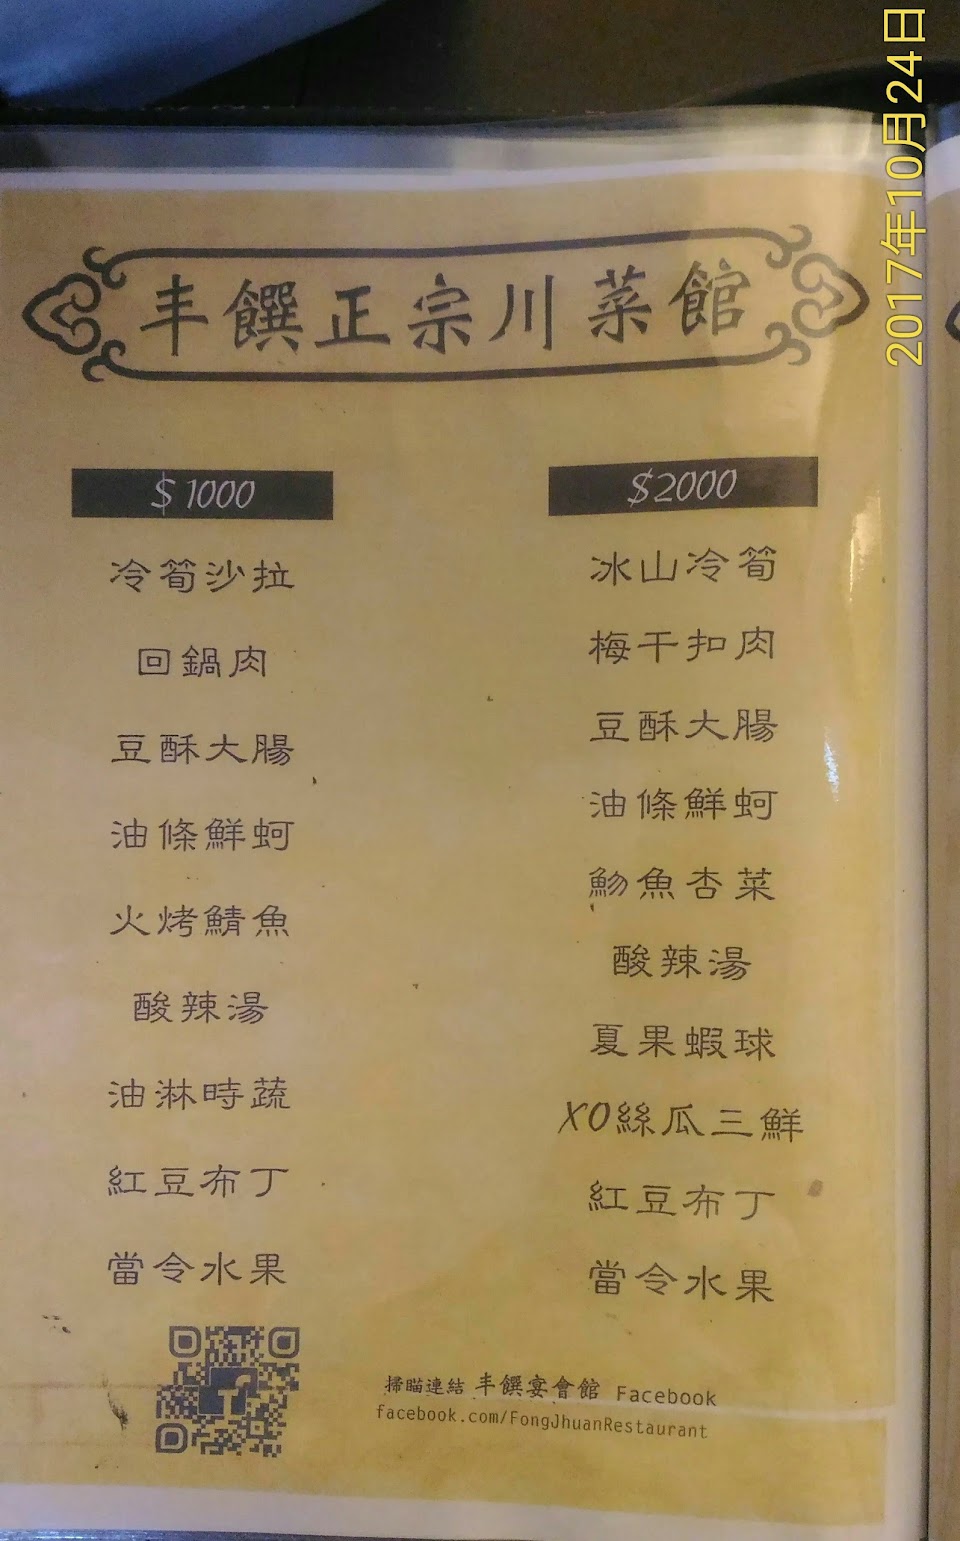 2017年10月24日
丰饌正宗川菜館
$1000
冷筍沙拉
回鍋肉
豆酥大腸
油條鮮蚵
火烤鯖魚
酸辣湯
油淋時蔬
紅豆布丁
當令水果
$2000
冰山冷筍
梅干扣肉
豆酥大腸
油條鮮蚵
魩魚杏菜
酸辣湯
夏果蝦球
XO絲瓜三鮮
紅豆布丁
當令水果
掃瞄連結 丰饌宴會館 Facebook
facebook.com/FongJhuanRestaurant